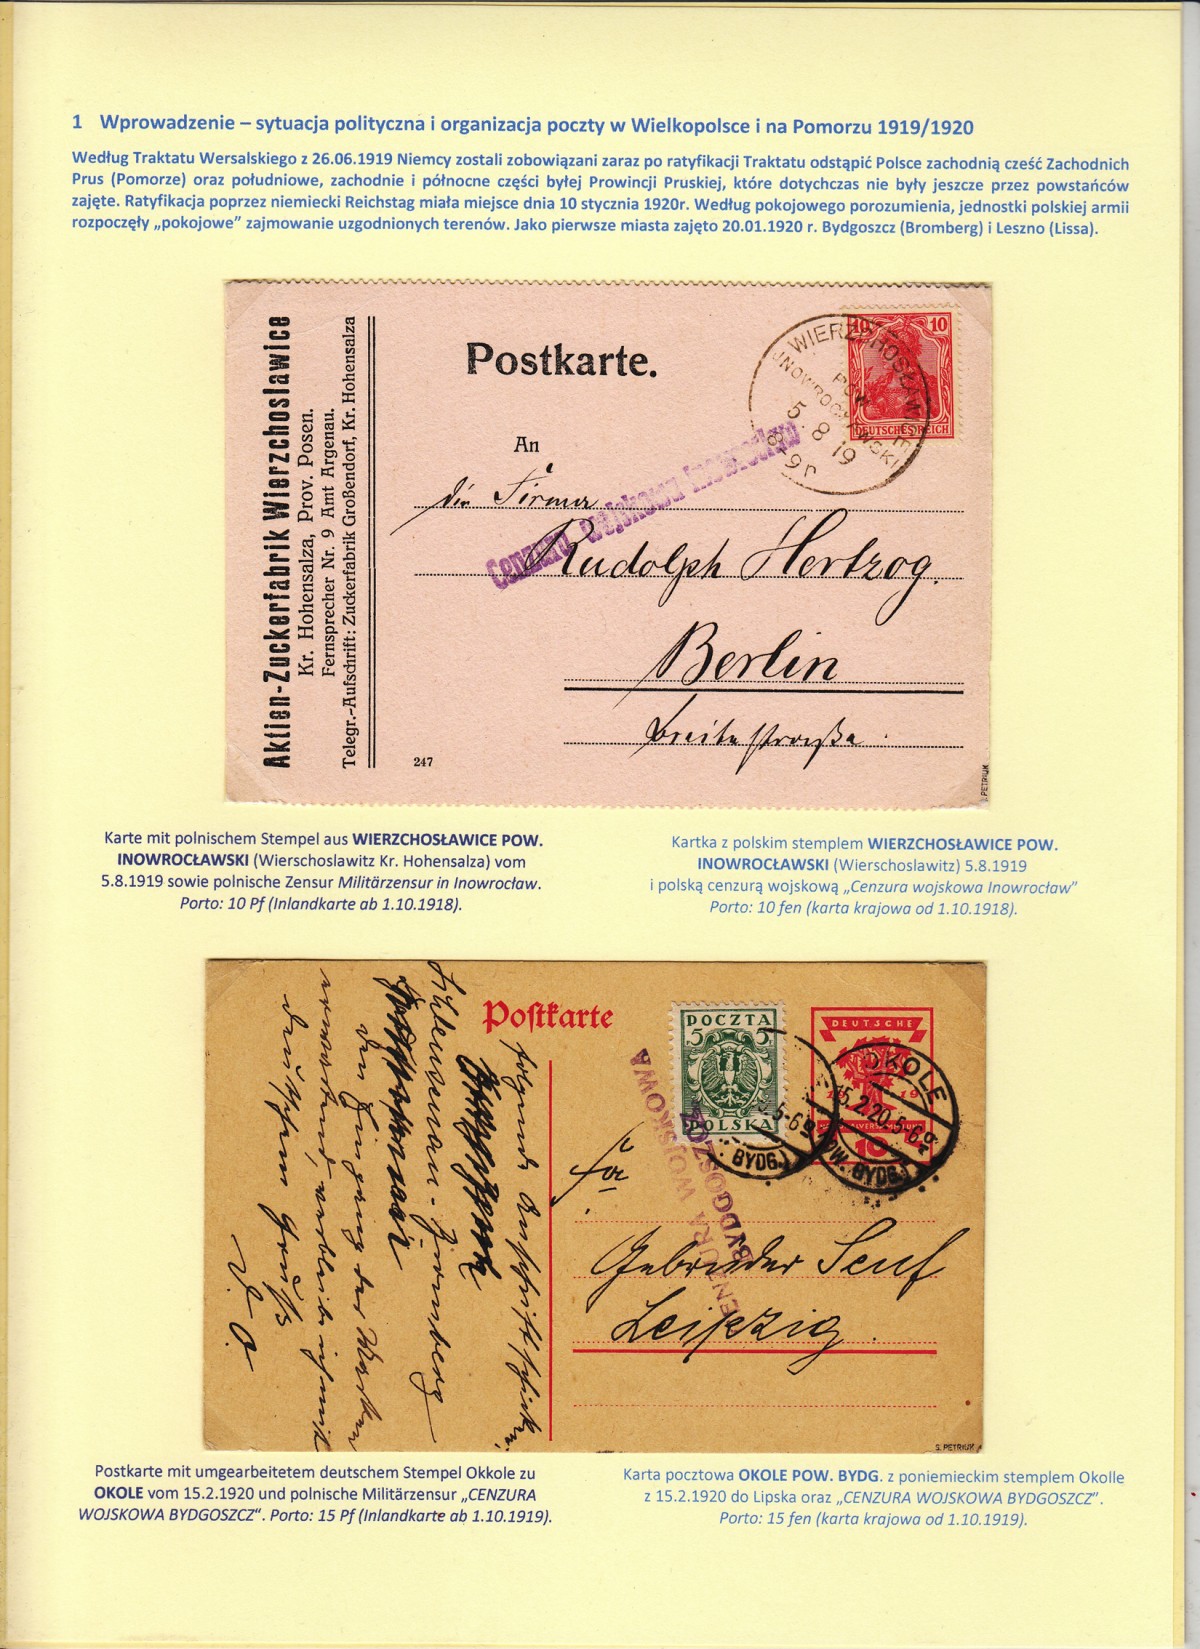 1 Wprowadzenie – sytuacja polityczna i organizacja poczty w Wielkopolsce i na Pomorzu 1919/1920
Według Traktatu Wersalskiego z 26.06.1919 Niemcy zostali zobowiązani zaraz po ratyfikacji Traktatu odstąpić Polsce zachodnią cześć Zachodnich
Prus (Pomorze) oraz południowe, zachodnie i północne części byłej Prowincji Pruskiej, które dotychczas nie były jeszcze przez powstańców
zajęte. Ratyfikacja poprzez niemiecki Reichstag miała miejsce dnia 10 stycznia 1920r. Według pokojowego porozumienia, jednostki polskiej armii
rozpoczęły „pokojowe” zajmowanie uzgodnionych terenów. Jako pierwsze miasta zajęto 20.01.1920 r. Bydgoszcz (Bromberg) i Leszno (Lissa).
Aktien-Zuckerfabrik Wierzchosławice
Kr. Hohensalza, Prov. Posen.
Fernsprecher Nr. 9 Amt Argenau.
Telegr.-Aufschrift: Zuckerfabrik Großendorf, Kr. Hohensalza
Postkarte.
10 10
DEUTSCHES REICH
WIERZCHOSŁAWICE
POW.
JNOWROCŁAWSKI
5. 8 19
8-9n
Cenzura wojskowa Inowrocław
An
die Firma
Rudolph Hertzog.
Berlin
Breitestraße.
247
S. PETRIUK
Karte mit polnischem Stempel aus WIERZCHOSŁAWICE POW.
INOWROCŁAWSKI (Wierschoslawitz Kr. Hohensalza) vom
5.8.1919 sowie polnische Zensur Militärzensur in Inowrocław.
Porto: 10 Pf (Inlandkarte ab 1.10.1918).
Kartka z polskim stemplem WIERZCHOSŁAWICE POW.
INOWROCŁAWSKI (Wierschoslawitz) 5.8.1919
i polską cenzurą wojskową „Cenzura wojskowa Inowrocław”
Porto: 10 fen (karta krajowa od 1.10.1918).
Postkarte
POCZTA
5 5
POLSKA
DEUTSCHE
19 19
10
5-6
BYDG.)
OKOLE
15.2.20.5-6
POW. BYDG.)
CENZURA WOJSKOWA
BYDGOSZCZ
folgende Aufschrift
Schleusenau-Bromberg
den Eingang der
Gruß
Fa
Gebrüder Senf
Leipzig.
S. PETRIUK
Postkarte mit umgearbeitetem deutschem Stempel Okkole zu
OKOLE vom 15.2.1920 und polnische Militärzensur „CENZURA
WOJSKOWA BYDGOSZCZ“. Porto: 15 Pf (Inlandkarte ab 1.10.1919).
Karta pocztowa OKOLE POW. BYDG. z poniemieckim stemplem Okolle
z 15.2.1920 do Lipska oraz „CENZURA WOJSKOWA BYDGOSZCZ”.
Porto: 15 fen (karta krajowa od 1.10.1919).